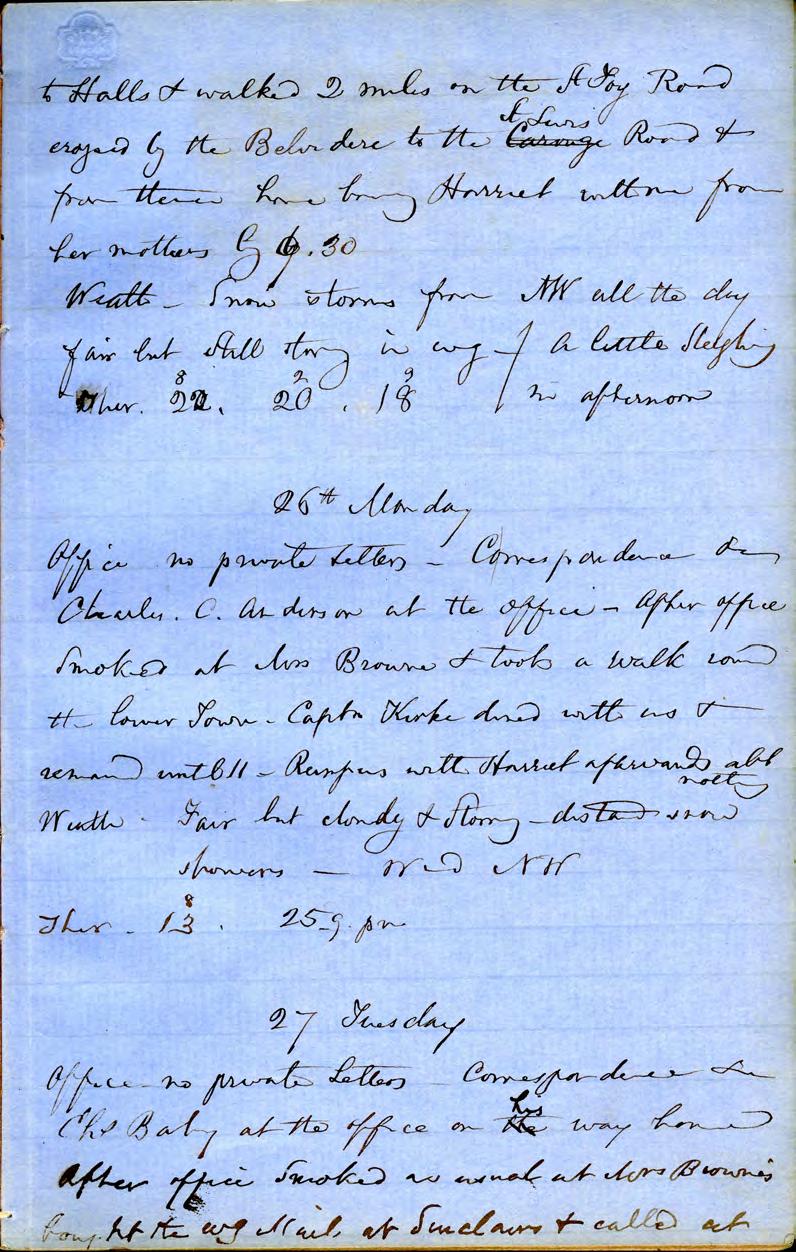 to Halls & walked 2 miles on the St Foy Road
crossed by the Belvidere to the St Lewis Road &
from thence home bring Harriet with me from
her mothers by 6.30
Weath - Snow storms from NW all the day
fair but still stormy in evg - / A little Sleighing
Ther. 22. 20. 18 / in afternoon
8 2 9
26th Monday
Office no private Letters - Correspondence &c
Charles. C. Anderson at the office - After office
Smoked at Mrs Browne & took a walk round
the lower Town - Captn Kirke dined with us &
remaind until 11 - Rumpus with Harriet afterwards abt
nothg
Weath - Fair but cloudy & Stormy - distand snow
showers - Wind NW
Ther - 13. 25 9. pm
8
27 Tuesday
Office no private Letters Correspondence &c
Chs Baby at the office on his way home
After office Smoked as usual at Mrs Browne's
bought the evg Mail at Sinclairs & called at